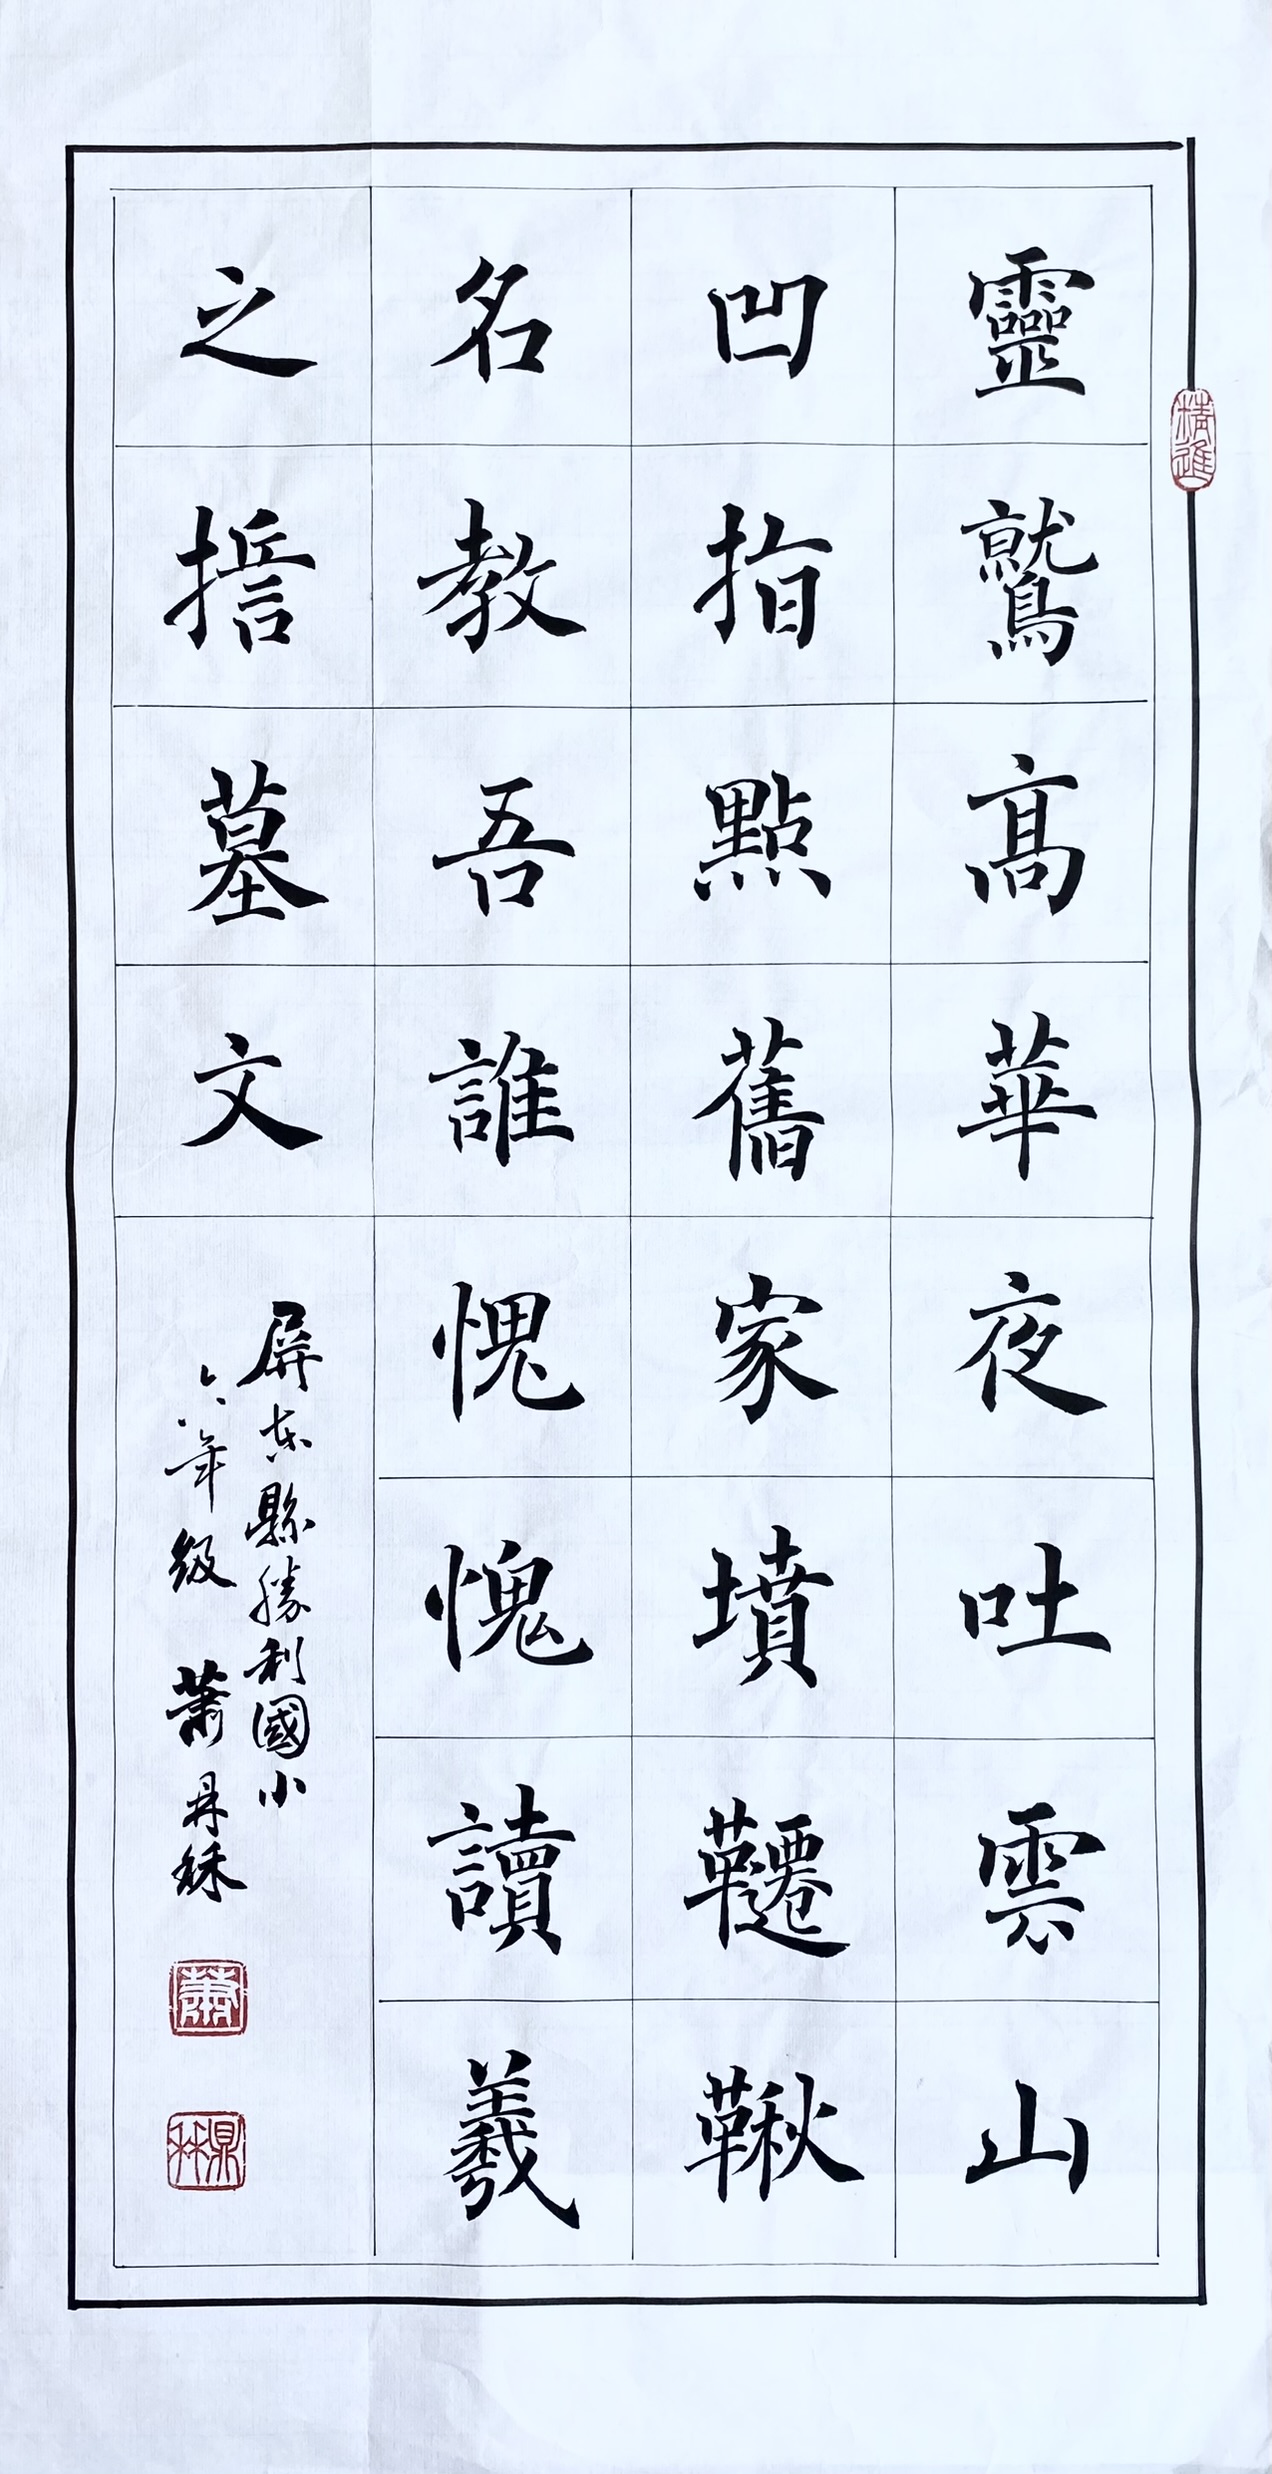 靈鷲高華夜吐雲山
凹指點舊家墳韆鞦
名教吾誰愧愧讀羲
之誓墓文
屏東縣勝利國小
六年級 蕭鼎穌
精進
蕭